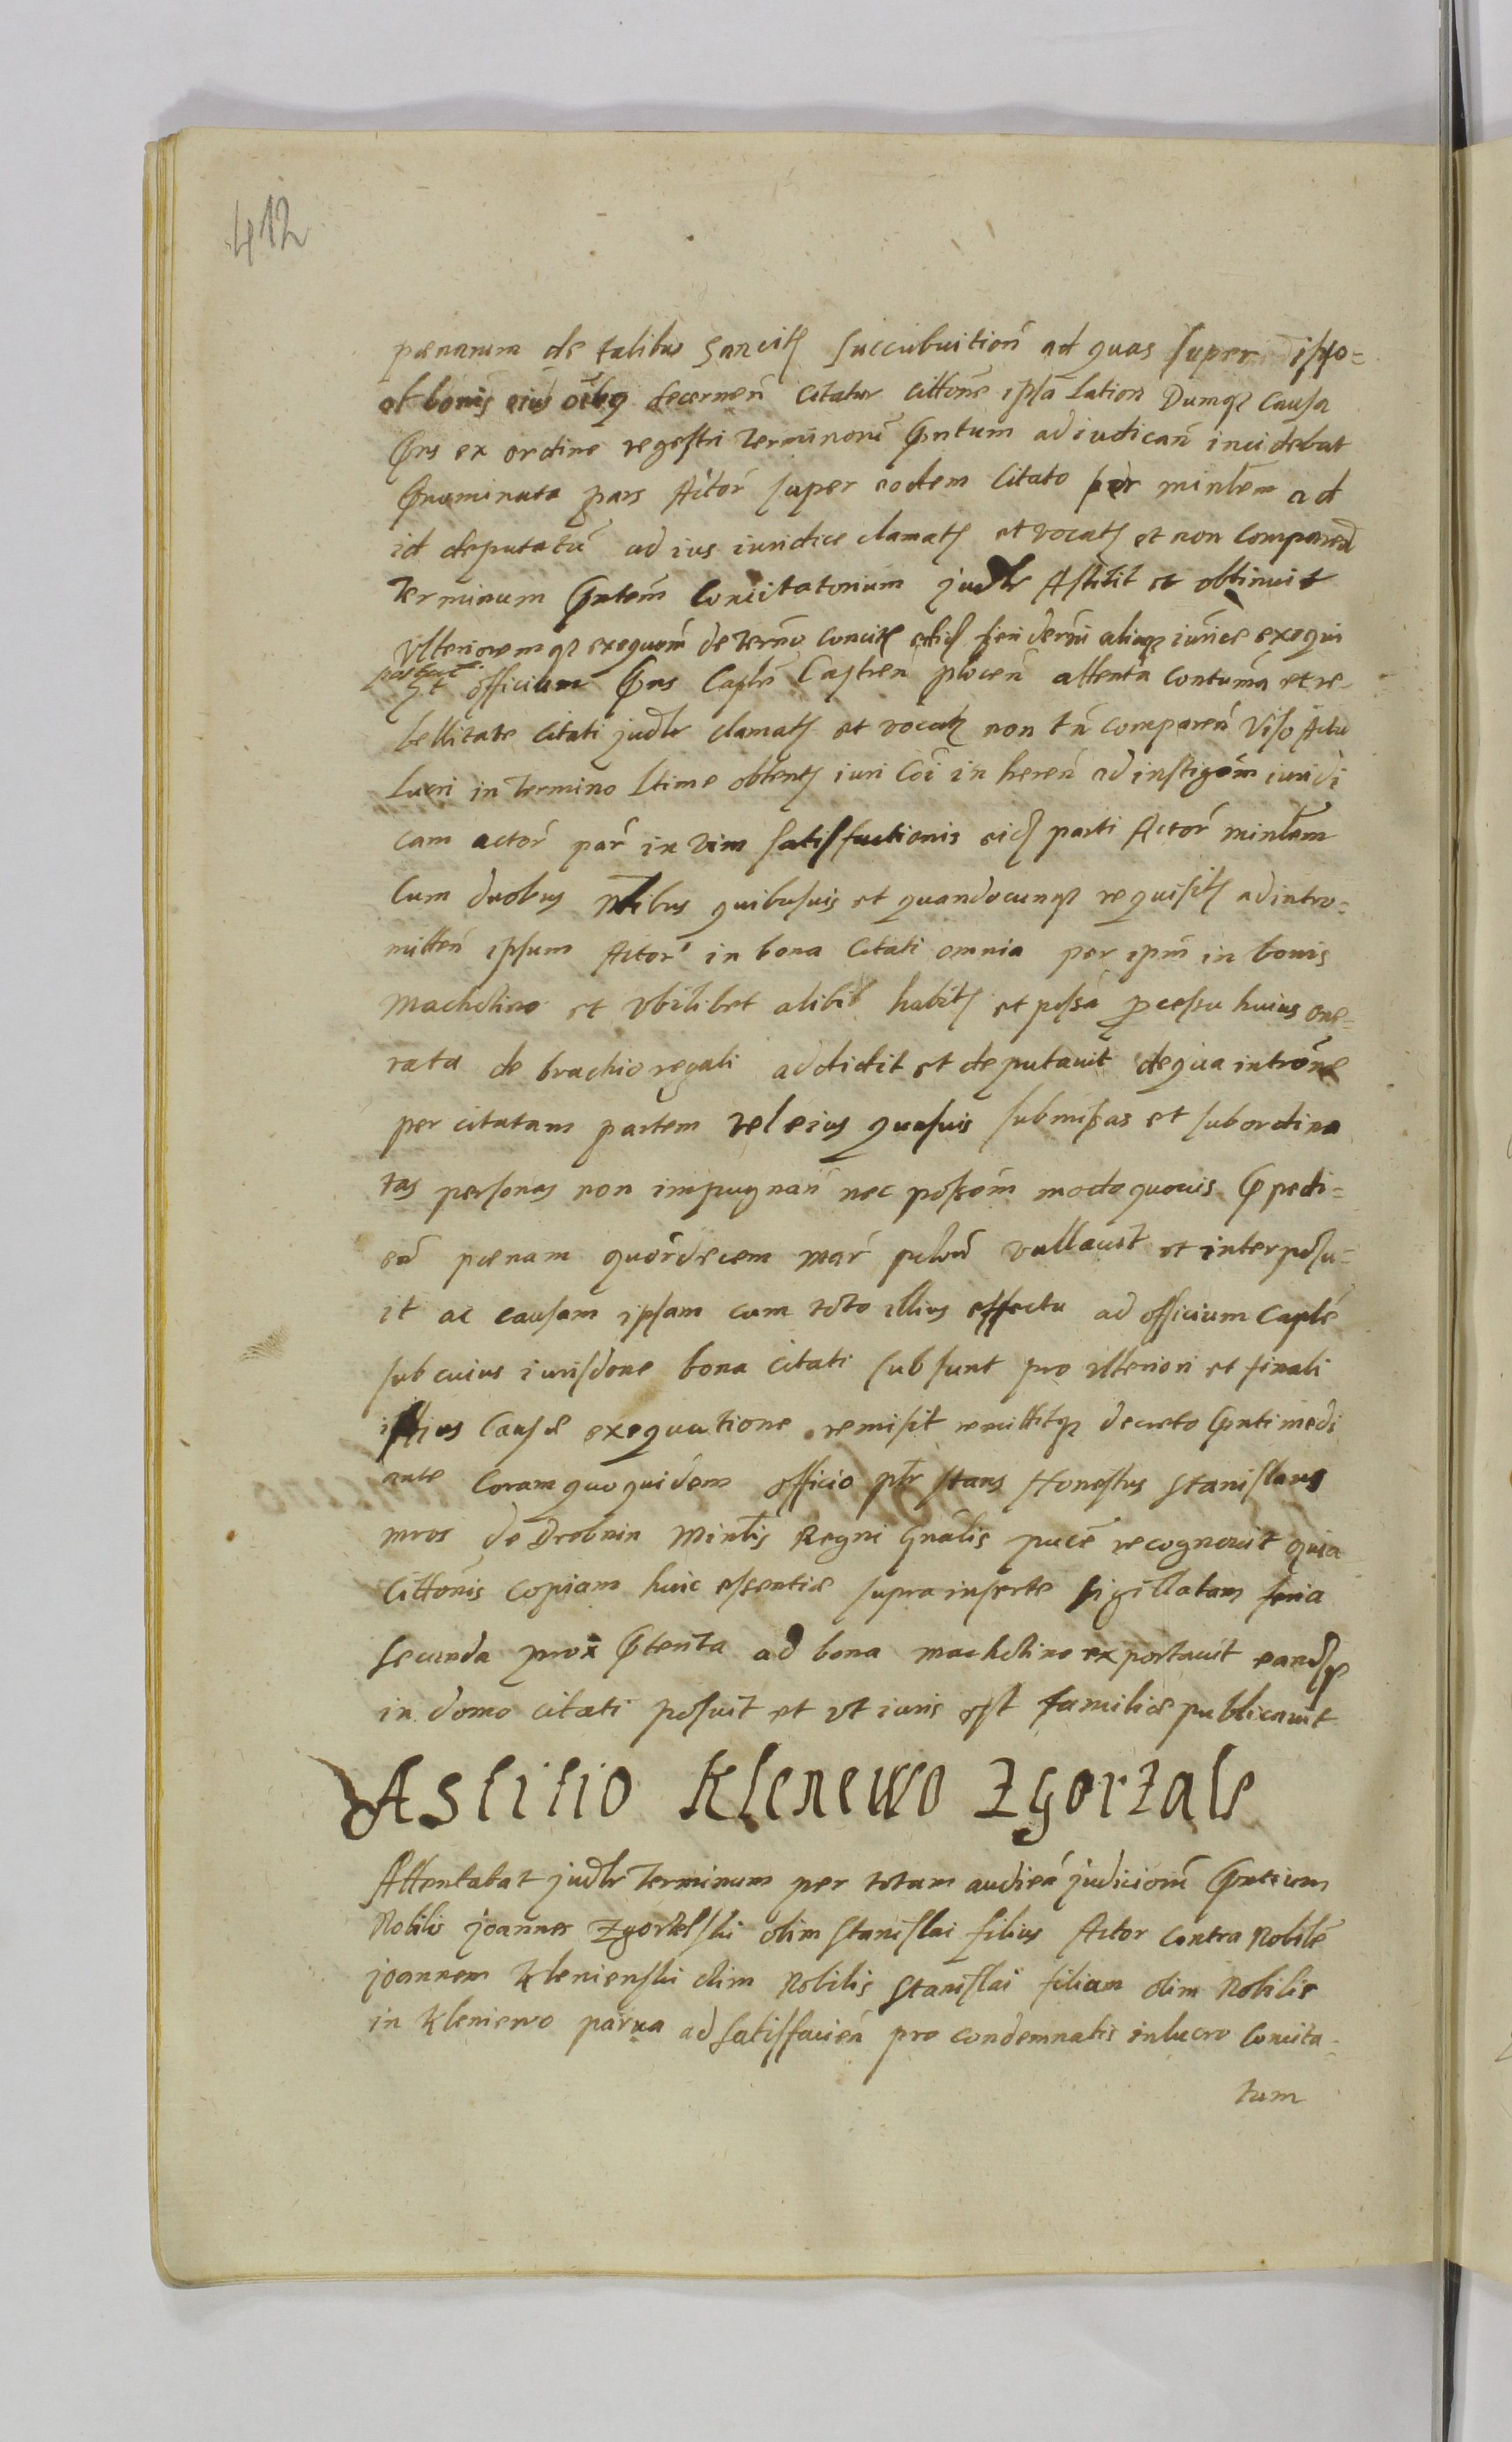 412
pœnarum de talibus sancitꝭ succubuitioñ ad quas super ipso
et bonis eius oĩbꝫ decerneñ citatur cittone ipsa Dumqꝫ causa
p̃ns ex ordine regestri terminorũ p̃ntium adiudicañ incidebat
p̃nominata pars Actor̃ super eodem citato per minlem ad
id deputatũ ad ius iuridice clamatꝭ et vocatꝭ et non comparen̄
terminum p̃ntem concitatorium jud̃lr Astitit et obtinuit
Ulterioremqꝫ exequõm de termo concitꝭ fieri decerni aliasqꝫ iurice exequi
postulat
Et officium p̃ns Capt̃e Castreñ plocen̄ attenta contumã et re-
bellitate citati jud̃lr clamatꝭ et vocatꝭ non tñ compareñ Viso Actu
lucri in termino ltime obtentꝭ iuri cõi in hereñ ad instigõm iuridi
cam actor̃ par̃ in vim satisfactionis eidꝭ parti Actor̃ minlem
cum duobus nlibus quibusvis et quandocunqꝫ requisitꝭ ad intro=
mitteñ ipsum Actor̃ in bona citati omnia per ipm in bonis
Machcino et ubilibet alibi habitꝭ et possã ꝓcessu huius one=
rata de brachio regali addidit et deputavit de qua introne
per citatam partem vel eius quasvis submissas et subordina
tas personas non impugnañ nec possõm modo quovis p̃pedi=
eñ pœnam quordecem mar̃ vallavit et interposu=
it ac causam ipsam cum toto illius effectu ad officium Capt̃e
sub cuius iurisdone bona citati subsunt pro ulteriori et finali
ipsius causæ exequutione remisit remittitqꝫ decreto p̃nti medi
ante coram quo quidem officio ptr stans Honestus Stanislaus
mros de Drobnin Minlis Regni Gnalis puce recognovit quia
cittonis copiam huic essentiæ supra insertæ sigillatam feria
secunda prox p̃terita ad bona machcino exportavit eandꝫqꝫ
in domo citati posuit et ut iuris est familiæ publicavit
Astitio Klenewo Zgorzale
Attentabat jud̃lr terminum per totam audieñ judiciorũ p̃ntium
Nobilis Joannes Zgorzelski olim Stanislai filius Actor contra Nobilẽ
joannem Klenienski olim Nobilis Stanislai filium olim Nobilis
in Kleniewo parva ad satisfacieñ pro condemnatis in lucro concita-
tum